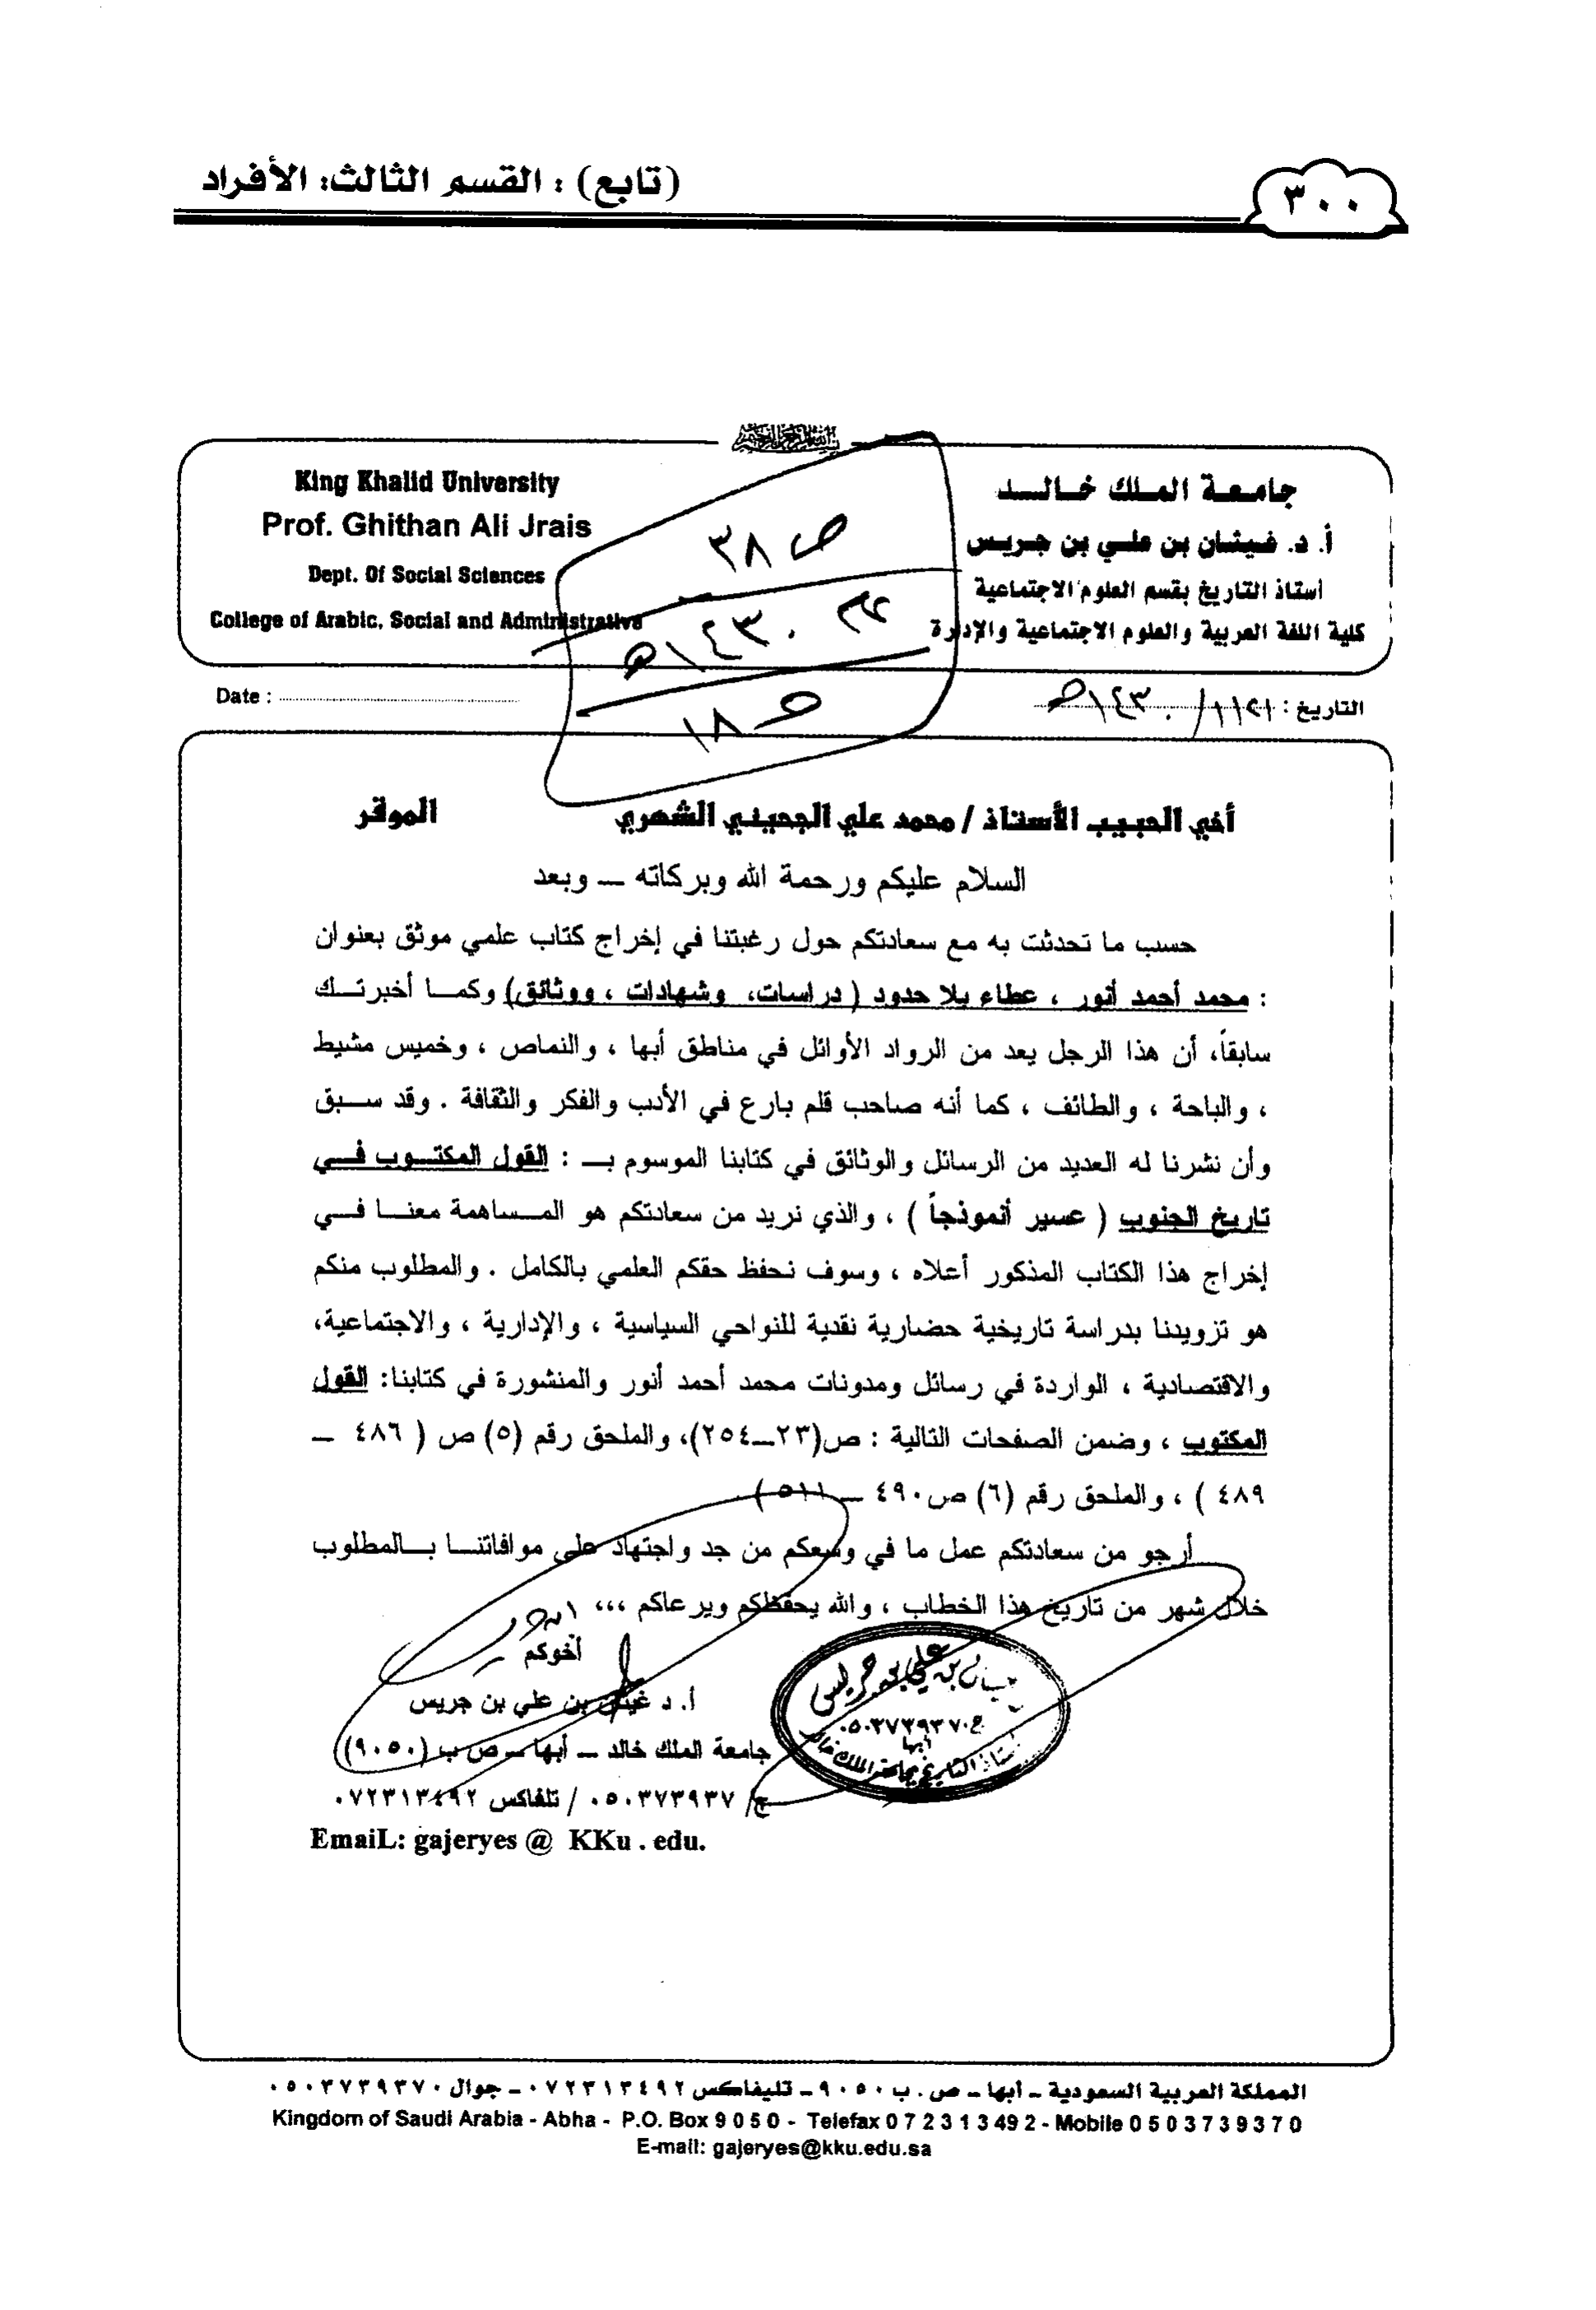 ٣٠٠
(تابع) : القسم الثالث: الأفراد
King Khalid University
Prof. Ghithan Ali Jrais
Dept. Of Social Sciences
College of Arabic, Social and Administrative
جامعة الملك خالد
أ. د. غيثان بن علي بن جريس
أستاذ التاريخ بقسم العلوم الاجتماعية
كلية اللغة العربية والعلوم الاجتماعية والإدارة
ص ٣٨
١٤٣٠هـ
ص ١٨
Date :
التاريخ : ٢١/١/١٤٣٠هـ
أخي الحبيب الأستاذ / محمد علي الجحيني الشهري الموقر
السلام عليكم ورحمة الله وبركاته – وبعد
حسب ما تحدثت به مع سعادتكم حول رغبتنا في إخراج كتاب علمي موثق بعنوان
: محمد أحمد أنور ، عطاء بلا حدود (دراسات، وشهادات ، ووثائق) وكما أخبرتك
سابقاً، أن هذا الرجل يعد من الرواد الأوائل في مناطق أبها ، والنماص ، وخميس مشيط
، والباحة ، والطائف ، كما أنه صاحب قلم بارع في الأدب والفكر والثقافة . وقد سبق
وأن نشرنا له العديد من الرسائل والوثائق في كتابنا الموسوم بـ : القول المكتوب في
تاريخ الجنوب ( عسير أنموذجاً ) ، والذي نريد من سعادتكم هو المساهمة معنا في
إخراج هذا الكتاب المذكور أعلاه ، وسوف نحفظ حقكم العلمي بالكامل . والمطلوب منكم
هو تزويدنا بدراسة تاريخية حضارية نقدية للنواحي السياسية ، والإدارية ، والاجتماعية،
والاقتصادية ، الواردة في رسائل ومدونات محمد أحمد أنور والمنشورة في كتابنا: القول
المكتوب ، وضمن الصفحات التالية : ص(٢٣–٢٥٤)، والملحق رقم (٥) ص ( ٤٨٦ –
٤٨٩ ) ، والملحق رقم (٦) ص٤٩٠ – ٥١١) .
أرجو من سعادتكم عمل ما في وسعكم من جد واجتهاد على موافاتنا بالمطلوب
خلال شهر من تاريخ هذا الخطاب ، والله يحفظكم ويرعاكم ،،،
أخوكم
أ. د غيثان بن علي بن جريس
جامعة الملك خالد – أبها – ص ب (٩٠٥٠)
ج/ ٠٥٠٣٧٣٩٣٧ / تلفاكس ٠٧٢٣١٣٤٩٢
EmaiL: gajeryes @ KKu . edu.
بن علي بن جريس
ج٠٥٠٣٧٣٩٣٧٠
أبها
أستاذ التاريخ بجامعة الملك خالد
المملكة العربية السعودية – أبها – ص . ب ٩٠٥٠ – تليفاكس ٠٧٢٣١٣٤٩٢ – جوال ٠٥٠٣٧٣٩٣٧٠
Kingdom of Saudi Arabia - Abha - P.O. Box 9 0 5 0 - Telefax 0 7 2 3 1 3 49 2 - Mobile 0 5 0 3 7 3 9 3 7 0
E-mail: gajeryes@kku.edu.sa